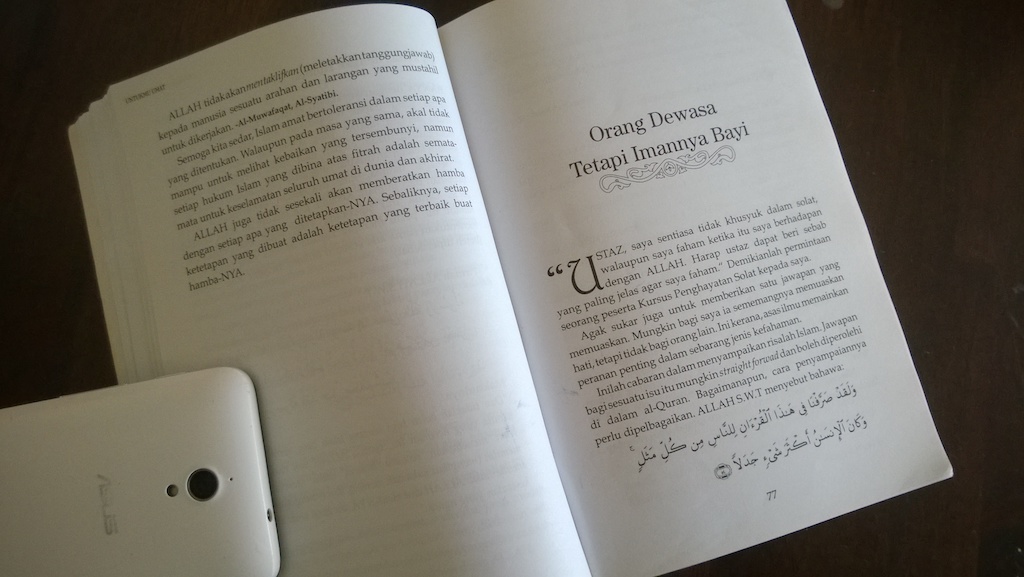 ALLAH tidak akan mentaklifkan (meletakkan tanggungjawab)
kepada manusia sesuatu arahan dan larangan yang mustahil
untuk dikerjakan. -Al-Muwafaqat, Al-Syatibi.
Semoga kita sedar, Islam amat bertoleransi dalam setiap apa
yang ditentukan. Walaupun pada masa yang sama, akal tidak
mampu untuk melihat kebaikan yang tersembunyi, namun
setiap hukum Islam yang dibina atas fitrah adalah semata-
mata untuk keselamatan seluruh umat di dunia dan akhirat.
ALLAH juga tidak sesekali akan memberatkan hamba
dengan setiap apa yang ditetapkan-NYA. Sebaliknya, setiap
ketetapan yang dibuat adalah ketetapan yang terbaik buat
hamba-NYA.
Orang Dewasa
Tetapi Imannya Bayi
“USTAZ, saya sentiasa tidak khusyuk dalam solat,
walaupun saya faham ketika itu saya berhadapan
dengan ALLAH. Harap ustaz dapat beri sebab
yang paling jelas agar saya faham.” Demikianlah permintaan
seorang peserta Kursus Penghayatan Solat kepada saya.
Agak sukar juga untuk memberikan satu jawapan yang
memuaskan. Mungkin bagi saya ia sememangnya memuaskan
hati, tetapi tidak bagi orang lain. Ini kerana, asas ilmu memainkan
peranan penting dalam sebarang jenis kefahaman.
Inilah cabaran dalam menyampaikan risalah Islam. Jawapan
bagi sesuatu isu itu mungkin straight forwad dan boleh diperolehi
di dalam al-Quran. Bagaimanapun, cara penyampaiannya
perlu dipelbagaikan. ALLAH S.W.T menyebut bahawa:
وَلَقَدْ صَرَّفْنَا فِى هَٰذَا ٱلْقُرْءَانِ لِلنَّاسِ مِن كُلِّ مَثَلٍ ۚ
وَكَانَ ٱلْإِنسَٰنُ أَكْثَرَ شَىْءٍ جَدَلًا
77
ASUS